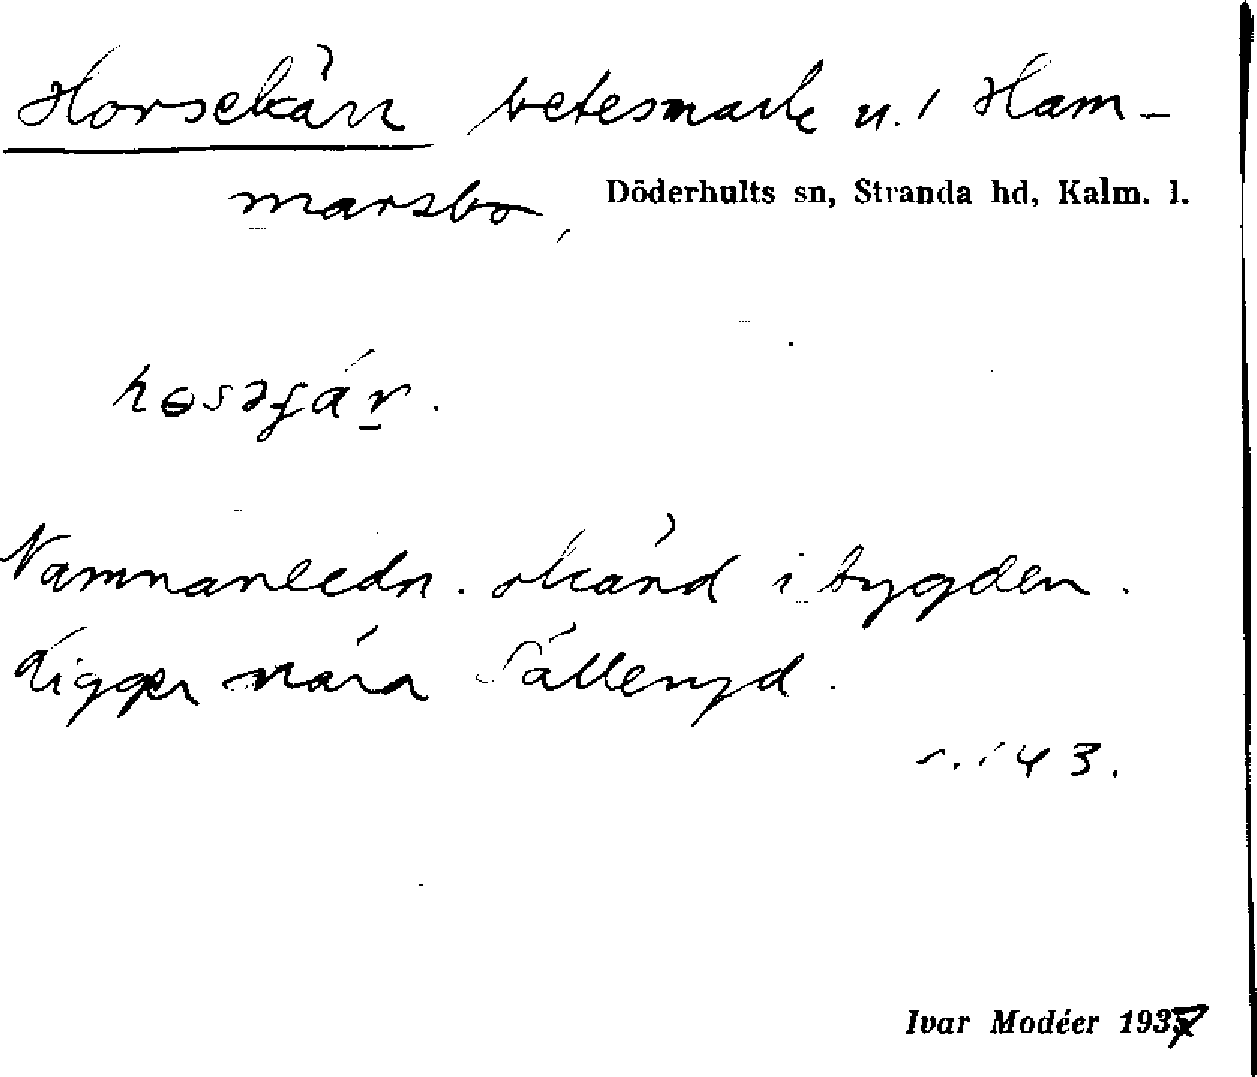 Horsekärr betesmark u. / Ham-
marsbo, Döderhults sn, Stranda hd, Kalm. l.
Namnanledn. okänd i bygden.
Ligger nära Sällenyd.
s. 143.
Ivar Modéer 1937